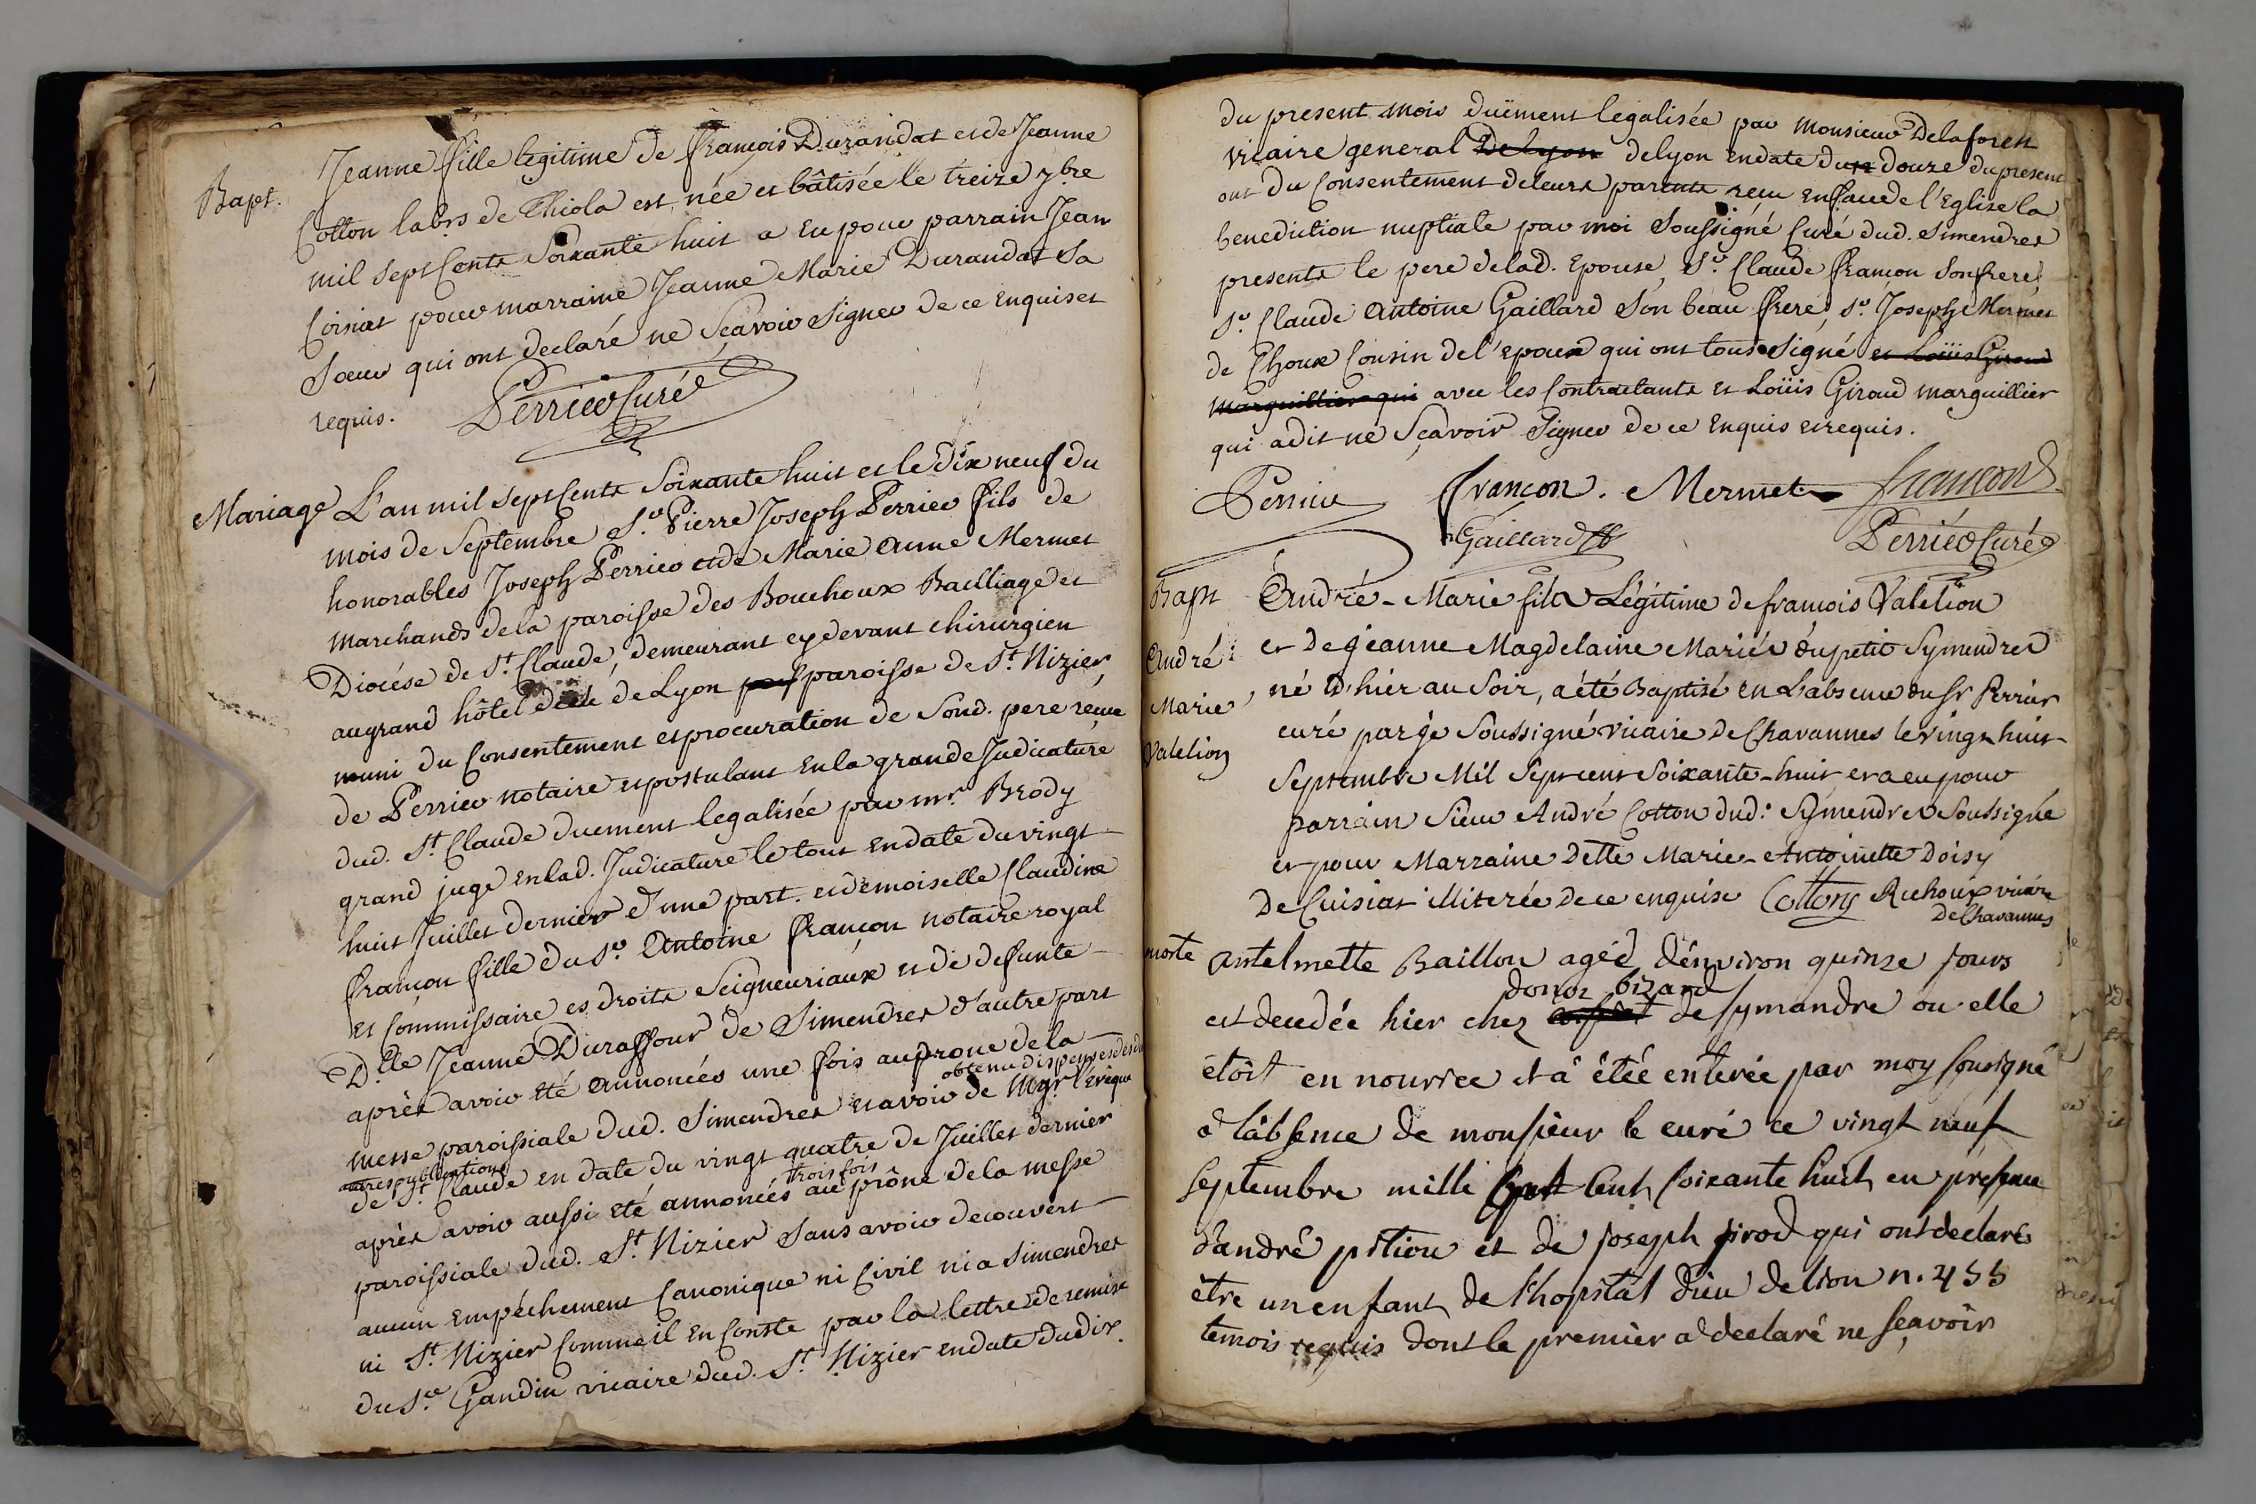 Bapt. Jeanne fille legitime de françois Durandat et de Jeanne
Cotton labrs de Thiola est née et bâtisée le treize 7bre
mil sept Cents Soixante huit a eu pour parrain Jean
Coisiat pour marraine Jeanne Marie Durandat sa
Soeur qui ont declaré ne Sçavoir Signer de ce Enquis et
requis. Perrier Curé
Mariage L'an mil sept Cents Soixante huit et le Dix neuf du
mois de Septembre Sr. Pierre Joseph Perrier fils de
honorables Joseph Perrier et de Marie Anne Mermet
Marchands de la paroisse des Bouchoux Bailliage et
Diocése de St. Claude, demeurant cy devant chirurgien
au grand hôtel dieu de Lyon paroisse de St. Nizier
muni du Consentement et procuration de Sond. pere reçue
de Perrier notaire et postulant En la grande Judicature
dud. St. Claude duement legalisée par mr. Brody
grand juge en lad. Judicature le tout en date du vingt
huit Juillet dernier d'une part. et demoiselle Claudine
françon fille du Sr. Antoine françon notaire royal
et Commissaire es droits Seigneuriaux et de defunte
Dlle. Jeanne Duraffour de Simendres d'autre part
après avoir été annoncées une fois au prone de la
messe paroissiale dud. Simendres et avoir obtenu dispenses des deux de Mgr. l'Evêque
autres publications
de St. Claude en date du vingt quatre de Juillet dernier
après avoir aussi eté annoncés trois fois au prône de la messe
paroissiale dud. St. Nizier Sans avoir decouvert
aucun Empêchement Canonique ni Civil ni a Simendres
ni St. Nizier Comme il En Conste par la lettre de remise
du Sr. Gandin vicaire dud. St. Nizier en date du dix
du present mois duëment legalisée par Monsieur Delaforest
vicaire general Delyon delyon en date du douze du present
ont du Consentement de leurs parents reçu en face de l'Eglise la
benediction nuptiale par moi Soussigné Curé dud. Simendres
presents le pere de lad. Epouse, Sr. Claude françon Son frere
Sr. Claude Antoine Gaillard Son beau frere, Sr. Joseph Mermet
de Choux Cousin de l'epoux qui ont tous Signé et Loüis Giroud
marguillier qui avec les Contractants et Loüis Giroud marguillier
qui a dit ne Sçavoir Signer de ce Enquis et requis.
Perrier françon. Mermet françon
Gaillard Perrier Curé
Bapt André-Marie fils Légitime de françois Valetion
et de jeanne Magdelaine Mariés du petit Symendres
André Marie Valetion né d'hier au Soir, a été Baptisé en L'absence du Sr Perrier
curé par je Soussigné vicaire de Chavannes le vingt huit
Septembre Mil Sept cent Soixante-huit et a eu pour
parrain Sieur André Cotton dud: Symendres Soussigné
et pour Marraine dette Marie-Antoinette Doisy
De Cuisiat illiterée de ce enquise Cottons Ruhoux vicaire
De Chavannes
morte antelmette Baillon agéé d'environ quinze jours
donoz bizard
est decedée hier chez de symandre ou elle
étoit en nourrce et â étée enterée par moy sousigné
à l'âbsence de monsieur le curé ce vingt neuf
septembre mille sept cent soixante huit en présence
d'andré pitiou et de joseph pirod qui ont declaré
être un enfant de l'hopital dieu de lion n. 455
temois requis dont le premier a declaré ne sçavoir